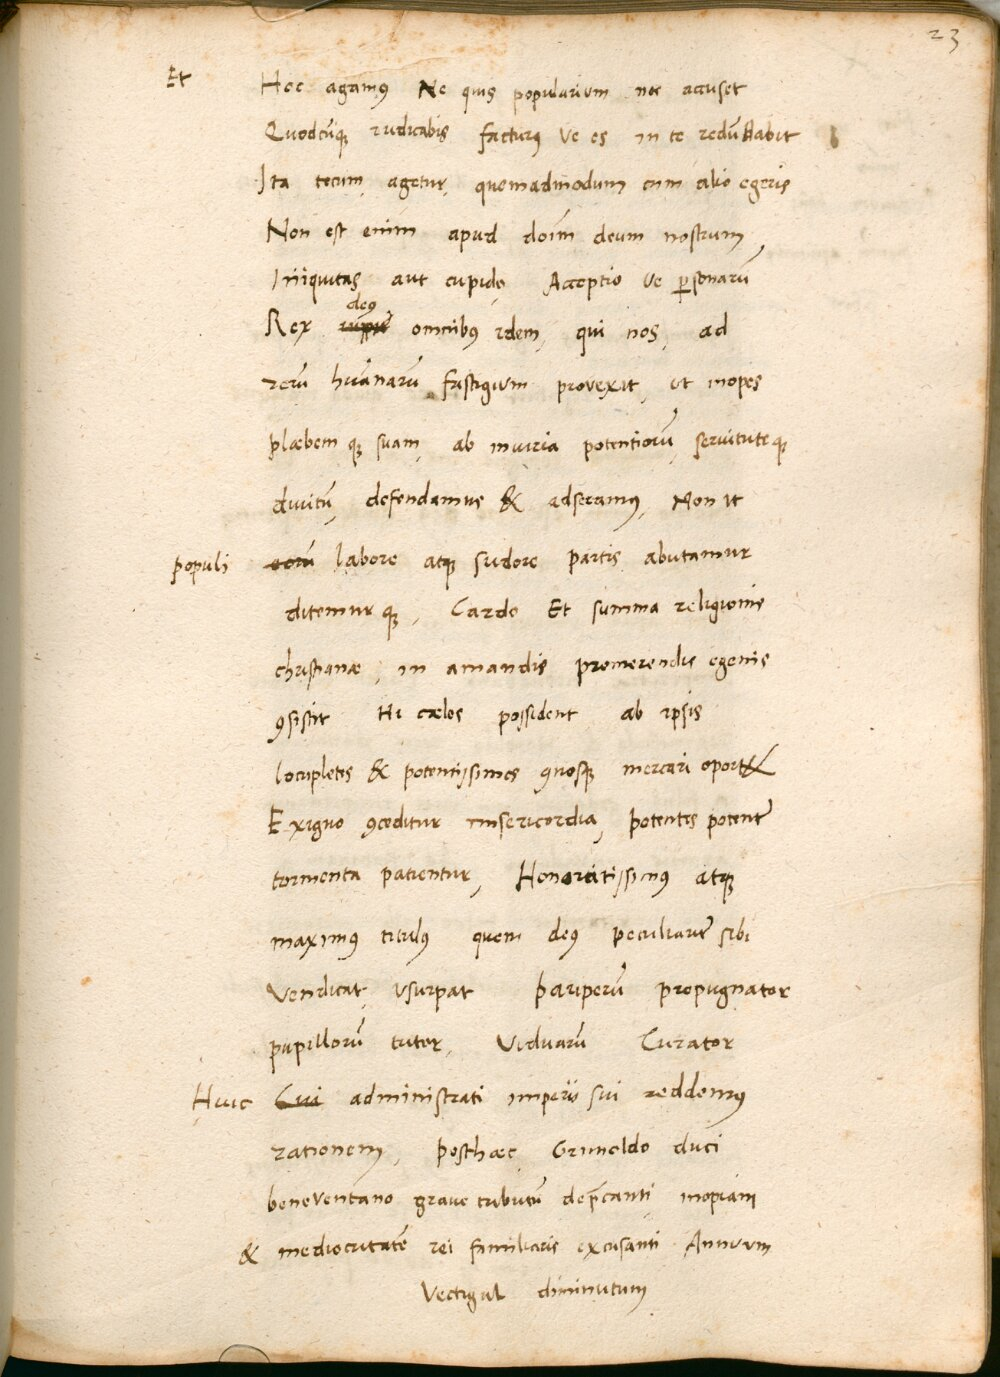 23
Et Hoc agamꝰ Ne quis popularium nos accuset
Quodcūqꝫ iudicabis facturꝰ ve es in te redundabit
Ita tecum agetur, quemadmodum cum alio egeris
Non est enim apud doīm deum nostrum,
Iniquitas aut cupido, Acceptio ve ꝑsonarū
deꝰ
Rex omnibꝰ idem, qui nos, ad
rerū humanarū fastigium provexit, ut inopes
plæbem qꝫ suam, ab iniuria potentiorū, servitute qꝫ
divitū, defendamus & adseramꝰ, Non ut
populi eorū labore atqꝫ sudore partis abutamur
ditemur qꝫ, Cardo Et summa religionis
christianæ, in amandis promerendis egenis
ꝯsistit Hi cælos possident ab ipsis
locupletes & potentissimos quosqꝫ mercari oportet
Exiguo ꝯceditur misericordia, potentes potenter̄
tormenta patientur, Honoratissimꝰ atqꝫ
maximꝰ titulꝰ quem deꝰ peculiariter̄ sibi
vendicat, usurpat pauperū propugnator
pupillorū tutor, Viduarū Curator
Huic Cui administrati imperii sui reddemꝰ
rationem, posthæc Grimoldo duci
beneventano grave tributū dep̄canti inopiam
& mediocritatē rei familiaris excusanti Annuum
Vectigal diminutum